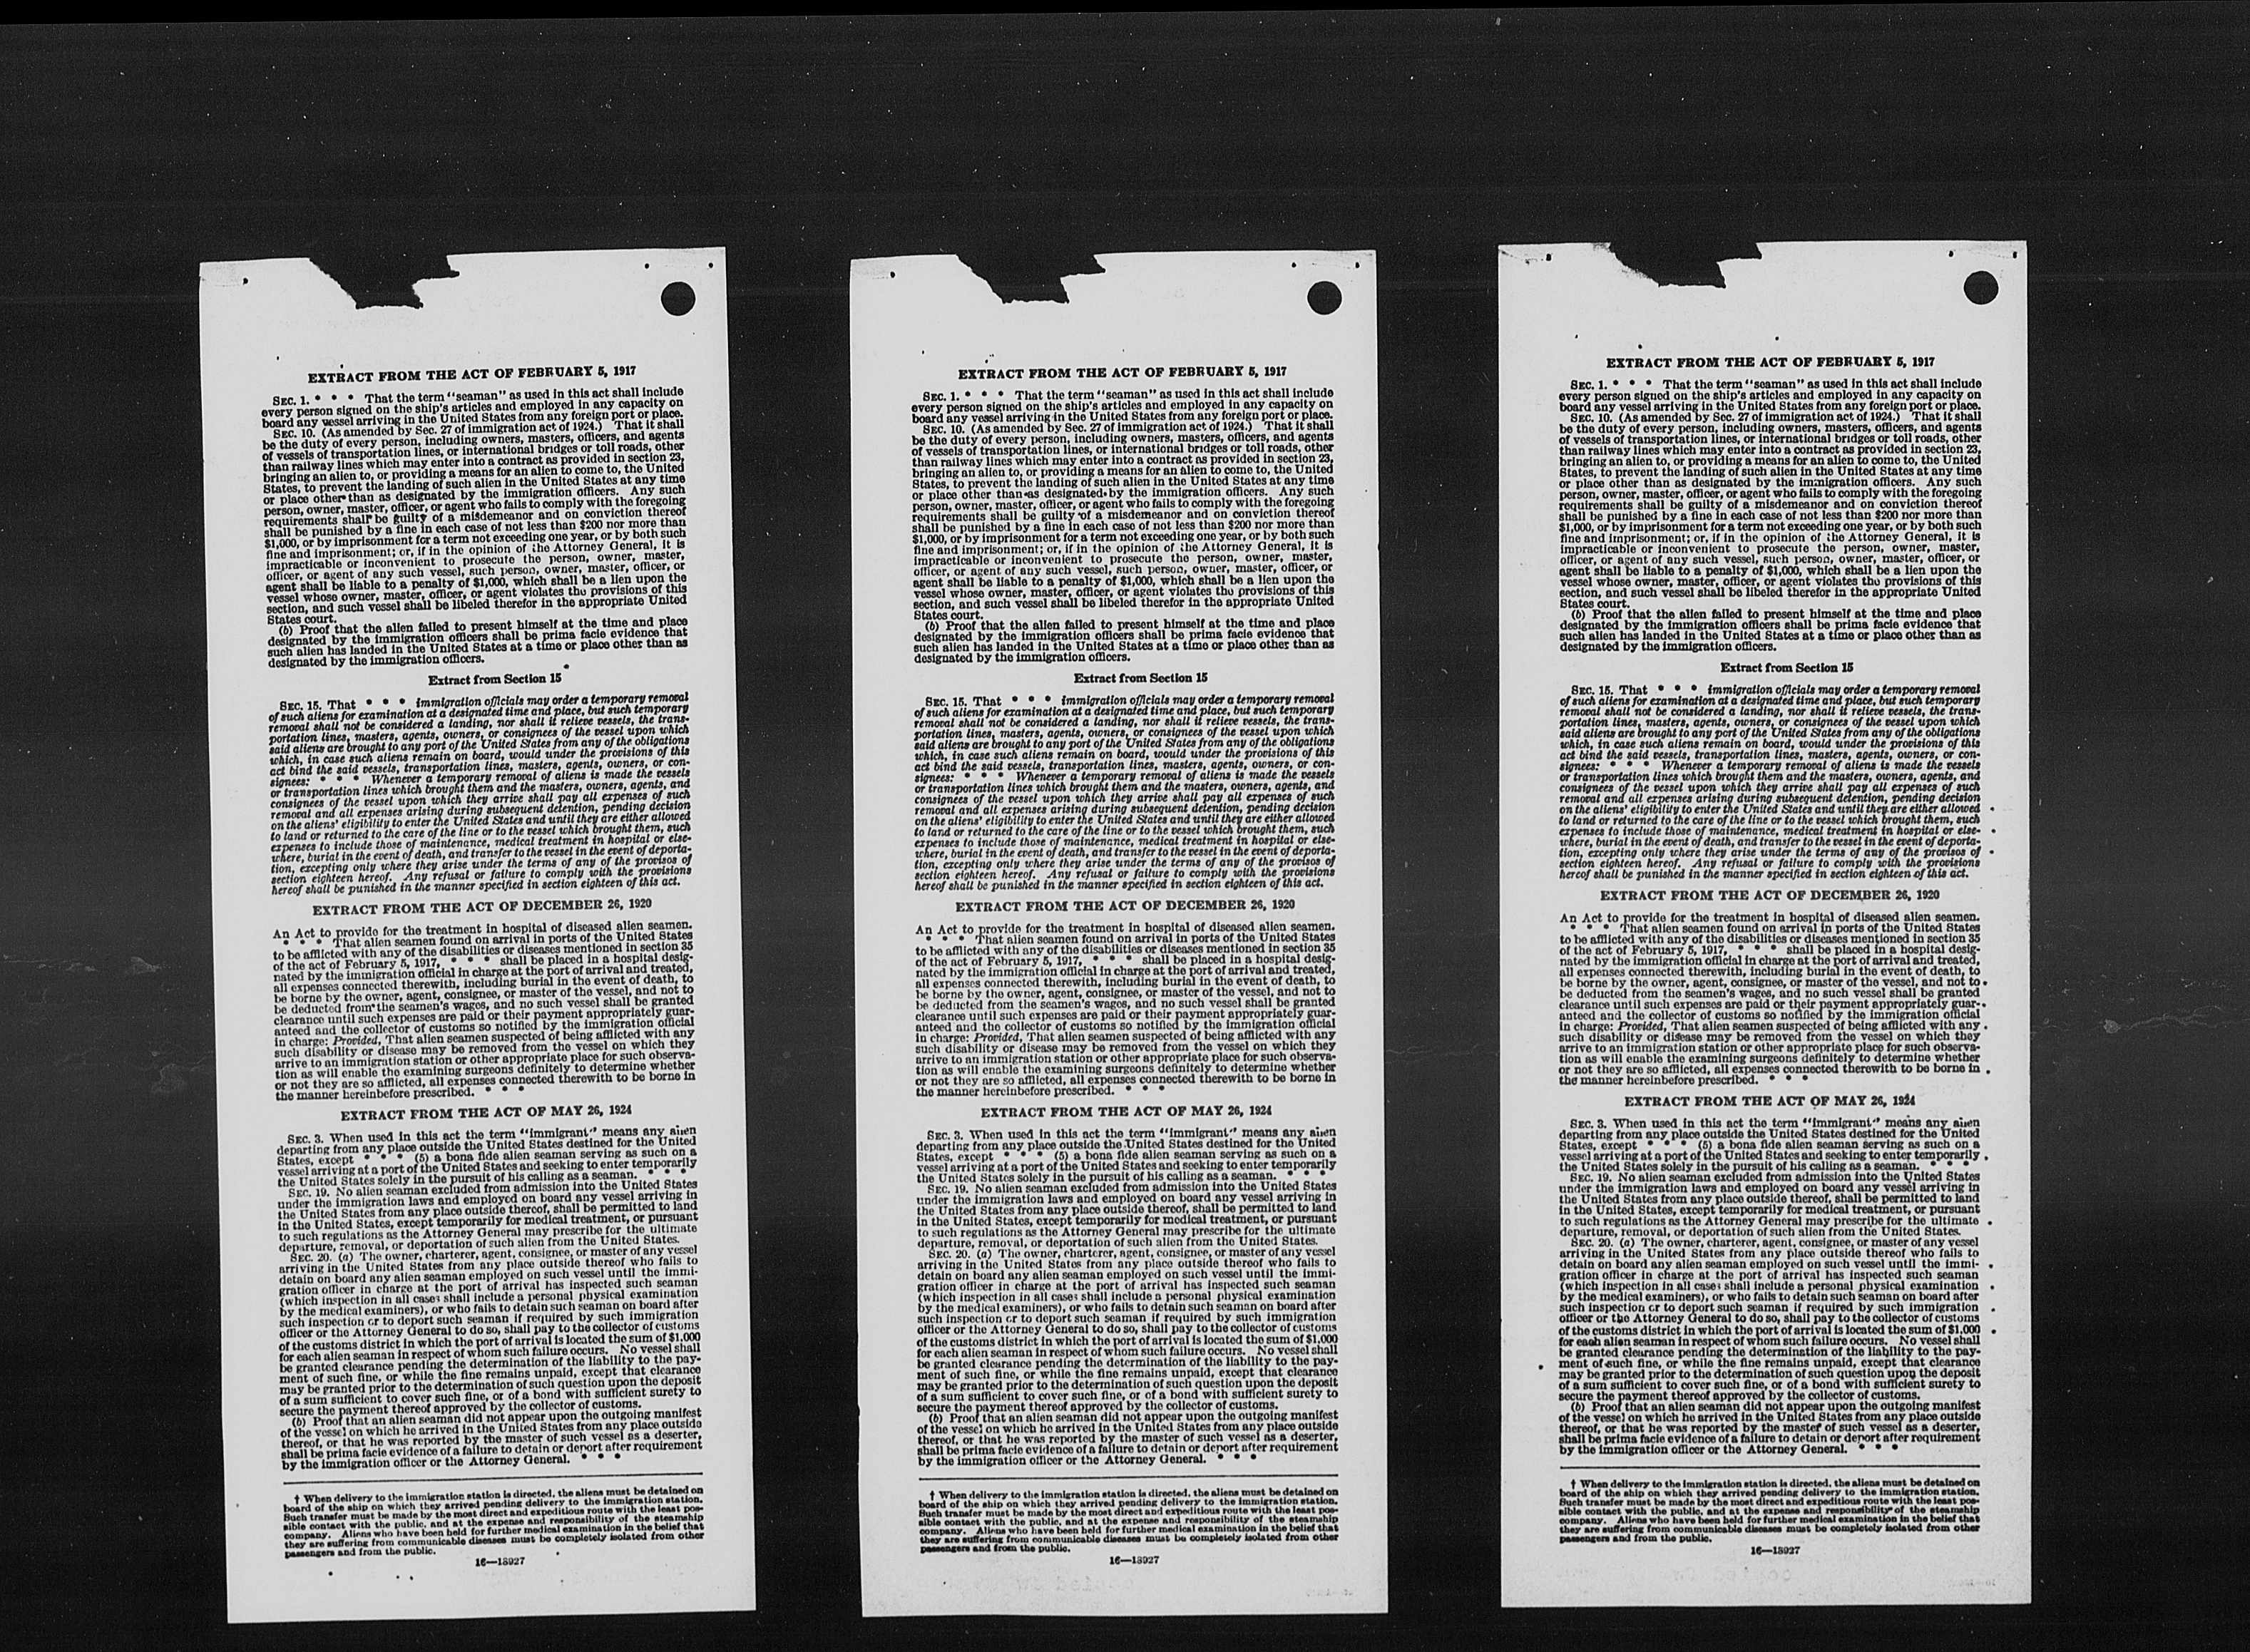 EXTRACT FROM THE ACT OF FEBRUARY 5, 1917
SEC. 1. * * * That the term "seaman" as used in this act shall include
every person signed on the ship's articles and employed in any capacity on
board any vessel arriving in the United States from any foreign port or place.
SEC. 10. (As amended by Sec. 27 of immigration act of 1924.) That it shall
be the duty of every person, including owners, masters, officers, and agents
of vessels of transportation lines, or international bridges or toll roads, other
than railway lines which may enter into a contract as provided in section 23,
bringing an alien to, or providing a means for an alien to come to, the United
States, to prevent the landing of such alien in the United States at any time
or place other than as designated by the immigration officers. Any such
person, owner, master, officer, or agent who fails to comply with the foregoing
requirements shall be guilty of a misdemeanor and on conviction thereof
shall be punished by a fine in each case of not less than $200 nor more than
$1,000, or by imprisonment for a term not exceeding one year, or by both such
fine and imprisonment; or, if in the opinion of the Attorney General, it is
impracticable or inconvenient to prosecute the person, owner, master,
officer, or agent of any such vessel, such person, owner, master, officer, or
agent shall be liable to a penalty of $1,000, which shall be a lien upon the
vessel whose owner, master, officer, or agent violates the provisions of this
section, and such vessel shall be libeled therefor in the appropriate United
States court.
(b) Proof that the alien failed to present himself at the time and place
designated by the immigration officers shall be prima facie evidence that
such alien has landed in the United States at a time or place other than as
designated by the immigration officers.
Extract from Section 15
SEC. 15. That * * * immigration officials may order a temporary removal
of such aliens for examination at a designated time and place, but such temporary
removal shall not be considered a landing, nor shall it relieve vessels, the trans-
portation lines, masters, agents, owners, or consignees of the vessel upon which
said aliens are brought to any port of the United States from any of the obligations
which, in case such aliens remain on board, would under the provisions of this
act bind the said vessels, transportation lines, masters, agents, owners, or con-
signees: * * * Whenever a temporary removal of aliens is made the vessels
or transportation lines which brought them and the masters, owners, agents, and
consignees of the vessel upon which they arrive shall pay all expenses of such
removal and all expenses arising during subsequent detention, pending decision
on the aliens' eligibility to enter the United States and until they are either allowed
to land or returned to the care of the line or to the vessel which brought them, such
expenses to include those of maintenance, medical treatment in hospital or else-
where, burial in the event of death, and transfer to the vessel in the event of deporta-
tion, excepting only where they arise under the terms of any of the provisos of
section eighteen hereof. Any refusal or failure to comply with the provisions
hereof shall be punished in the manner specified in section eighteen of this act.
EXTRACT FROM THE ACT OF DECEMBER 26, 1920
An Act to provide for the treatment in hospital of diseased alien seamen.
* * * That alien seamen found on arrival in ports of the United States
to be afflicted with any of the disabilities or diseases mentioned in section 35
of the act of February 5, 1917, * * * shall be placed in a hospital desig-
nated by the immigration official in charge at the port of arrival and treated,
all expenses connected therewith, including burial in the event of death, to
be borne by the owner, agent, consignee, or master of the vessel, and not to
be deducted from the seamen's wages, and no such vessel shall be granted
clearance until such expenses are paid or their payment appropriately guar-
anteed and the collector of customs so notified by the immigration official
in charge: Provided, That alien seamen suspected of being afflicted with any
such disability or disease may be removed from the vessel on which they
arrive to an immigration station or other appropriate place for such observa-
tion as will enable the examining surgeons definitely to determine whether
or not they are so afflicted, all expenses connected therewith to be borne in
the manner hereinbefore prescribed. * * *
EXTRACT FROM THE ACT OF MAY 26, 1924
SEC. 3. When used in this act the term "immigrant" means any alien
departing from any place outside the United States destined for the United
States, except * * * (5) a bona fide alien seaman serving as such on a
vessel arriving at a port of the United States and seeking to enter temporarily
the United States solely in the pursuit of his calling as a seaman. * * *
SEC. 19. No alien seaman excluded from admission into the United States
under the immigration laws and employed on board any vessel arriving in
the United States from any place outside thereof, shall be permitted to land
in the United States, except temporarily for medical treatment, or pursuant
to such regulations as the Attorney General may prescribe for the ultimate
departure, removal, or deportation of such alien from the United States.
SEC. 20. (a) The owner, charterer, agent, consignee, or master of any vessel
arriving in the United States from any place outside thereof who fails to
detain on board any alien seaman employed on such vessel until the immi-
gration officer in charge at the port of arrival has inspected such seaman
(which inspection in all cases shall include a personal physical examination
by the medical examiners), or who fails to detain such seaman on board after
such inspection or to deport such seaman if required by such immigration
officer or the Attorney General to do so, shall pay to the collector of customs
of the customs district in which the port of arrival is located the sum of $1,000
for each alien seaman in respect of whom such failure occurs. No vessel shall
be granted clearance pending the determination of the liability to the pay-
ment of such fine, or while the fine remains unpaid, except that clearance
may be granted prior to the determination of such question upon the deposit
of a sum sufficient to cover such fine, or of a bond with sufficient surety to
secure the payment thereof approved by the collector of customs.
(b) Proof that an alien seaman did not appear upon the outgoing manifest
of the vessel on which he arrived in the United States from any place outside
thereof, or that he was reported by the master of such vessel as a deserter,
shall be prima facie evidence of a failure to detain or deport after requirement
by the immigration officer or the Attorney General. * * *
† When delivery to the immigration station is directed, the aliens must be detained on
board of the ship on which they arrived pending delivery to the immigration station.
Such transfer must be made by the most direct and expeditious route with the least pos-
sible contact with the public, and at the expense and responsibility of the steamship
company. Aliens who have been held for further medical examination in the belief that
they are suffering from communicable diseases must be completely isolated from other
passengers and from the public.
16—18927
EXTRACT FROM THE ACT OF FEBRUARY 5, 1917
SEC. 1. * * * That the term "seaman" as used in this act shall include
every person signed on the ship's articles and employed in any capacity on
board any vessel arriving in the United States from any foreign port or place.
SEC. 10. (As amended by Sec. 27 of immigration act of 1924.) That it shall
be the duty of every person, including owners, masters, officers, and agents
of vessels of transportation lines, or international bridges or toll roads, other
than railway lines which may enter into a contract as provided in section 23,
bringing an alien to, or providing a means for an alien to come to, the United
States, to prevent the landing of such alien in the United States at any time
or place other than as designated by the immigration officers. Any such
person, owner, master, officer, or agent who fails to comply with the foregoing
requirements shall be guilty of a misdemeanor and on conviction thereof
shall be punished by a fine in each case of not less than $200 nor more than
$1,000, or by imprisonment for a term not exceeding one year, or by both such
fine and imprisonment; or, if in the opinion of the Attorney General, it is
impracticable or inconvenient to prosecute the person, owner, master,
officer, or agent of any such vessel, such person, owner, master, officer, or
agent shall be liable to a penalty of $1,000, which shall be a lien upon the
vessel whose owner, master, officer, or agent violates the provisions of this
section, and such vessel shall be libeled therefor in the appropriate United
States court.
(b) Proof that the alien failed to present himself at the time and place
designated by the immigration officers shall be prima facie evidence that
such alien has landed in the United States at a time or place other than as
designated by the immigration officers.
Extract from Section 15
SEC. 15. That * * * immigration officials may order a temporary removal
of such aliens for examination at a designated time and place, but such temporary
removal shall not be considered a landing, nor shall it relieve vessels, the trans-
portation lines, masters, agents, owners, or consignees of the vessel upon which
said aliens are brought to any port of the United States from any of the obligations
which, in case such aliens remain on board, would under the provisions of this
act bind the said vessels, transportation lines, masters, agents, owners, or con-
signees: * * * Whenever a temporary removal of aliens is made the vessels
or transportation lines which brought them and the masters, owners, agents, and
consignees of the vessel upon which they arrive shall pay all expenses of such
removal and all expenses arising during subsequent detention, pending decision
on the aliens' eligibility to enter the United States and until they are either allowed
to land or returned to the care of the line or to the vessel which brought them, such
expenses to include those of maintenance, medical treatment in hospital or else-
where, burial in the event of death, and transfer to the vessel in the event of deporta-
tion, excepting only where they arise under the terms of any of the provisos of
section eighteen hereof. Any refusal or failure to comply with the provisions
hereof shall be punished in the manner specified in section eighteen of this act.
EXTRACT FROM THE ACT OF DECEMBER 26, 1920
An Act to provide for the treatment in hospital of diseased alien seamen.
* * * That alien seamen found on arrival in ports of the United States
to be afflicted with any of the disabilities or diseases mentioned in section 35
of the act of February 5, 1917, * * * shall be placed in a hospital desig-
nated by the immigration official in charge at the port of arrival and treated,
all expenses connected therewith, including burial in the event of death, to
be borne by the owner, agent, consignee, or master of the vessel, and not to
be deducted from the seamen's wages, and no such vessel shall be granted
clearance until such expenses are paid or their payment appropriately guar-
anteed and the collector of customs so notified by the immigration official
in charge: Provided, That alien seamen suspected of being afflicted with any
such disability or disease may be removed from the vessel on which they
arrive to an immigration station or other appropriate place for such observa-
tion as will enable the examining surgeons definitely to determine whether
or not they are so afflicted, all expenses connected therewith to be borne in
the manner hereinbefore prescribed. * * *
EXTRACT FROM THE ACT OF MAY 26, 1924
SEC. 3. When used in this act the term "immigrant" means any alien
departing from any place outside the United States destined for the United
States, except * * * (5) a bona fide alien seaman serving as such on a
vessel arriving at a port of the United States and seeking to enter temporarily
the United States solely in the pursuit of his calling as a seaman. * * *
SEC. 19. No alien seaman excluded from admission into the United States
under the immigration laws and employed on board any vessel arriving in
the United States from any place outside thereof, shall be permitted to land
in the United States, except temporarily for medical treatment, or pursuant
to such regulations as the Attorney General may prescribe for the ultimate
departure, removal, or deportation of such alien from the United States.
SEC. 20. (a) The owner, charterer, agent, consignee, or master of any vessel
arriving in the United States from any place outside thereof who fails to
detain on board any alien seaman employed on such vessel until the immi-
gration officer in charge at the port of arrival has inspected such seaman
(which inspection in all cases shall include a personal physical examination
by the medical examiners), or who fails to detain such seaman on board after
such inspection or to deport such seaman if required by such immigration
officer or the Attorney General to do so, shall pay to the collector of customs
of the customs district in which the port of arrival is located the sum of $1,000
for each alien seaman in respect of whom such failure occurs. No vessel shall
be granted clearance pending the determination of the liability to the pay-
ment of such fine, or while the fine remains unpaid, except that clearance
may be granted prior to the determination of such question upon the deposit
of a sum sufficient to cover such fine, or of a bond with sufficient surety to
secure the payment thereof approved by the collector of customs.
(b) Proof that an alien seaman did not appear upon the outgoing manifest
of the vessel on which he arrived in the United States from any place outside
thereof, or that he was reported by the master of such vessel as a deserter,
shall be prima facie evidence of a failure to detain or deport after requirement
by the immigration officer or the Attorney General. * * *
† When delivery to the immigration station is directed, the aliens must be detained on
board of the ship on which they arrived pending delivery to the immigration station.
Such transfer must be made by the most direct and expeditious route with the least pos-
sible contact with the public, and at the expense and responsibility of the steamship
company. Aliens who have been held for further medical examination in the belief that
they are suffering from communicable diseases must be completely isolated from other
passengers and from the public.
16—18927
EXTRACT FROM THE ACT OF FEBRUARY 5, 1917
SEC. 1. * * * That the term "seaman" as used in this act shall include
every person signed on the ship's articles and employed in any capacity on
board any vessel arriving in the United States from any foreign port or place.
SEC. 10. (As amended by Sec. 27 of immigration act of 1924.) That it shall
be the duty of every person, including owners, masters, officers, and agents
of vessels of transportation lines, or international bridges or toll roads, other
than railway lines which may enter into a contract as provided in section 23,
bringing an alien to, or providing a means for an alien to come to, the United
States, to prevent the landing of such alien in the United States at any time
or place other than as designated by the immigration officers. Any such
person, owner, master, officer, or agent who fails to comply with the foregoing
requirements shall be guilty of a misdemeanor and on conviction thereof
shall be punished by a fine in each case of not less than $200 nor more than
$1,000, or by imprisonment for a term not exceeding one year, or by both such
fine and imprisonment; or, if in the opinion of the Attorney General, it is
impracticable or inconvenient to prosecute the person, owner, master,
officer, or agent of any such vessel, such person, owner, master, officer, or
agent shall be liable to a penalty of $1,000, which shall be a lien upon the
vessel whose owner, master, officer, or agent violates the provisions of this
section, and such vessel shall be libeled therefor in the appropriate United
States court.
(b) Proof that the alien failed to present himself at the time and place
designated by the immigration officers shall be prima facie evidence that
such alien has landed in the United States at a time or place other than as
designated by the immigration officers.
Extract from Section 15
SEC. 15. That * * * immigration officials may order a temporary removal
of such aliens for examination at a designated time and place, but such temporary
removal shall not be considered a landing, nor shall it relieve vessels, the trans-
portation lines, masters, agents, owners, or consignees of the vessel upon which
said aliens are brought to any port of the United States from any of the obligations
which, in case such aliens remain on board, would under the provisions of this
act bind the said vessels, transportation lines, masters, agents, owners, or con-
signees: * * * Whenever a temporary removal of aliens is made the vessels
or transportation lines which brought them and the masters, owners, agents, and
consignees of the vessel upon which they arrive shall pay all expenses of such
removal and all expenses arising during subsequent detention, pending decision
on the aliens' eligibility to enter the United States and until they are either allowed
to land or returned to the care of the line or to the vessel which brought them, such
expenses to include those of maintenance, medical treatment in hospital or else-
where, burial in the event of death, and transfer to the vessel in the event of deporta-
tion, excepting only where they arise under the terms of any of the provisos of
section eighteen hereof. Any refusal or failure to comply with the provisions
hereof shall be punished in the manner specified in section eighteen of this act.
EXTRACT FROM THE ACT OF DECEMBER 26, 1920
An Act to provide for the treatment in hospital of diseased alien seamen.
* * * That alien seamen found on arrival in ports of the United States
to be afflicted with any of the disabilities or diseases mentioned in section 35
of the act of February 5, 1917, * * * shall be placed in a hospital desig-
nated by the immigration official in charge at the port of arrival and treated,
all expenses connected therewith, including burial in the event of death, to
be borne by the owner, agent, consignee, or master of the vessel, and not to
be deducted from the seamen's wages, and no such vessel shall be granted
clearance until such expenses are paid or their payment appropriately guar-
anteed and the collector of customs so notified by the immigration official
in charge: Provided, That alien seamen suspected of being afflicted with any
such disability or disease may be removed from the vessel on which they
arrive to an immigration station or other appropriate place for such observa-
tion as will enable the examining surgeons definitely to determine whether
or not they are so afflicted, all expenses connected therewith to be borne in
the manner hereinbefore prescribed. * * *
EXTRACT FROM THE ACT OF MAY 26, 1924
SEC. 3. When used in this act the term "immigrant" means any alien
departing from any place outside the United States destined for the United
States, except * * * (5) a bona fide alien seaman serving as such on a
vessel arriving at a port of the United States and seeking to enter temporarily
the United States solely in the pursuit of his calling as a seaman. * * *
SEC. 19. No alien seaman excluded from admission into the United States
under the immigration laws and employed on board any vessel arriving in
the United States from any place outside thereof, shall be permitted to land
in the United States, except temporarily for medical treatment, or pursuant
to such regulations as the Attorney General may prescribe for the ultimate
departure, removal, or deportation of such alien from the United States.
SEC. 20. (a) The owner, charterer, agent, consignee, or master of any vessel
arriving in the United States from any place outside thereof who fails to
detain on board any alien seaman employed on such vessel until the immi-
gration officer in charge at the port of arrival has inspected such seaman
(which inspection in all cases shall include a personal physical examination
by the medical examiners), or who fails to detain such seaman on board after
such inspection or to deport such seaman if required by such immigration
officer or the Attorney General to do so, shall pay to the collector of customs
of the customs district in which the port of arrival is located the sum of $1,000
for each alien seaman in respect of whom such failure occurs. No vessel shall
be granted clearance pending the determination of the liability to the pay-
ment of such fine, or while the fine remains unpaid, except that clearance
may be granted prior to the determination of such question upon the deposit
of a sum sufficient to cover such fine, or of a bond with sufficient surety to
secure the payment thereof approved by the collector of customs.
(b) Proof that an alien seaman did not appear upon the outgoing manifest
of the vessel on which he arrived in the United States from any place outside
thereof, or that he was reported by the master of such vessel as a deserter,
shall be prima facie evidence of a failure to detain or deport after requirement
by the immigration officer or the Attorney General. * * *
† When delivery to the immigration station is directed, the aliens must be detained on
board of the ship on which they arrived pending delivery to the immigration station.
Such transfer must be made by the most direct and expeditious route with the least pos-
sible contact with the public, and at the expense and responsibility of the steamship
company. Aliens who have been held for further medical examination in the belief that
they are suffering from communicable diseases must be completely isolated from other
passengers and from the public.
16—18927